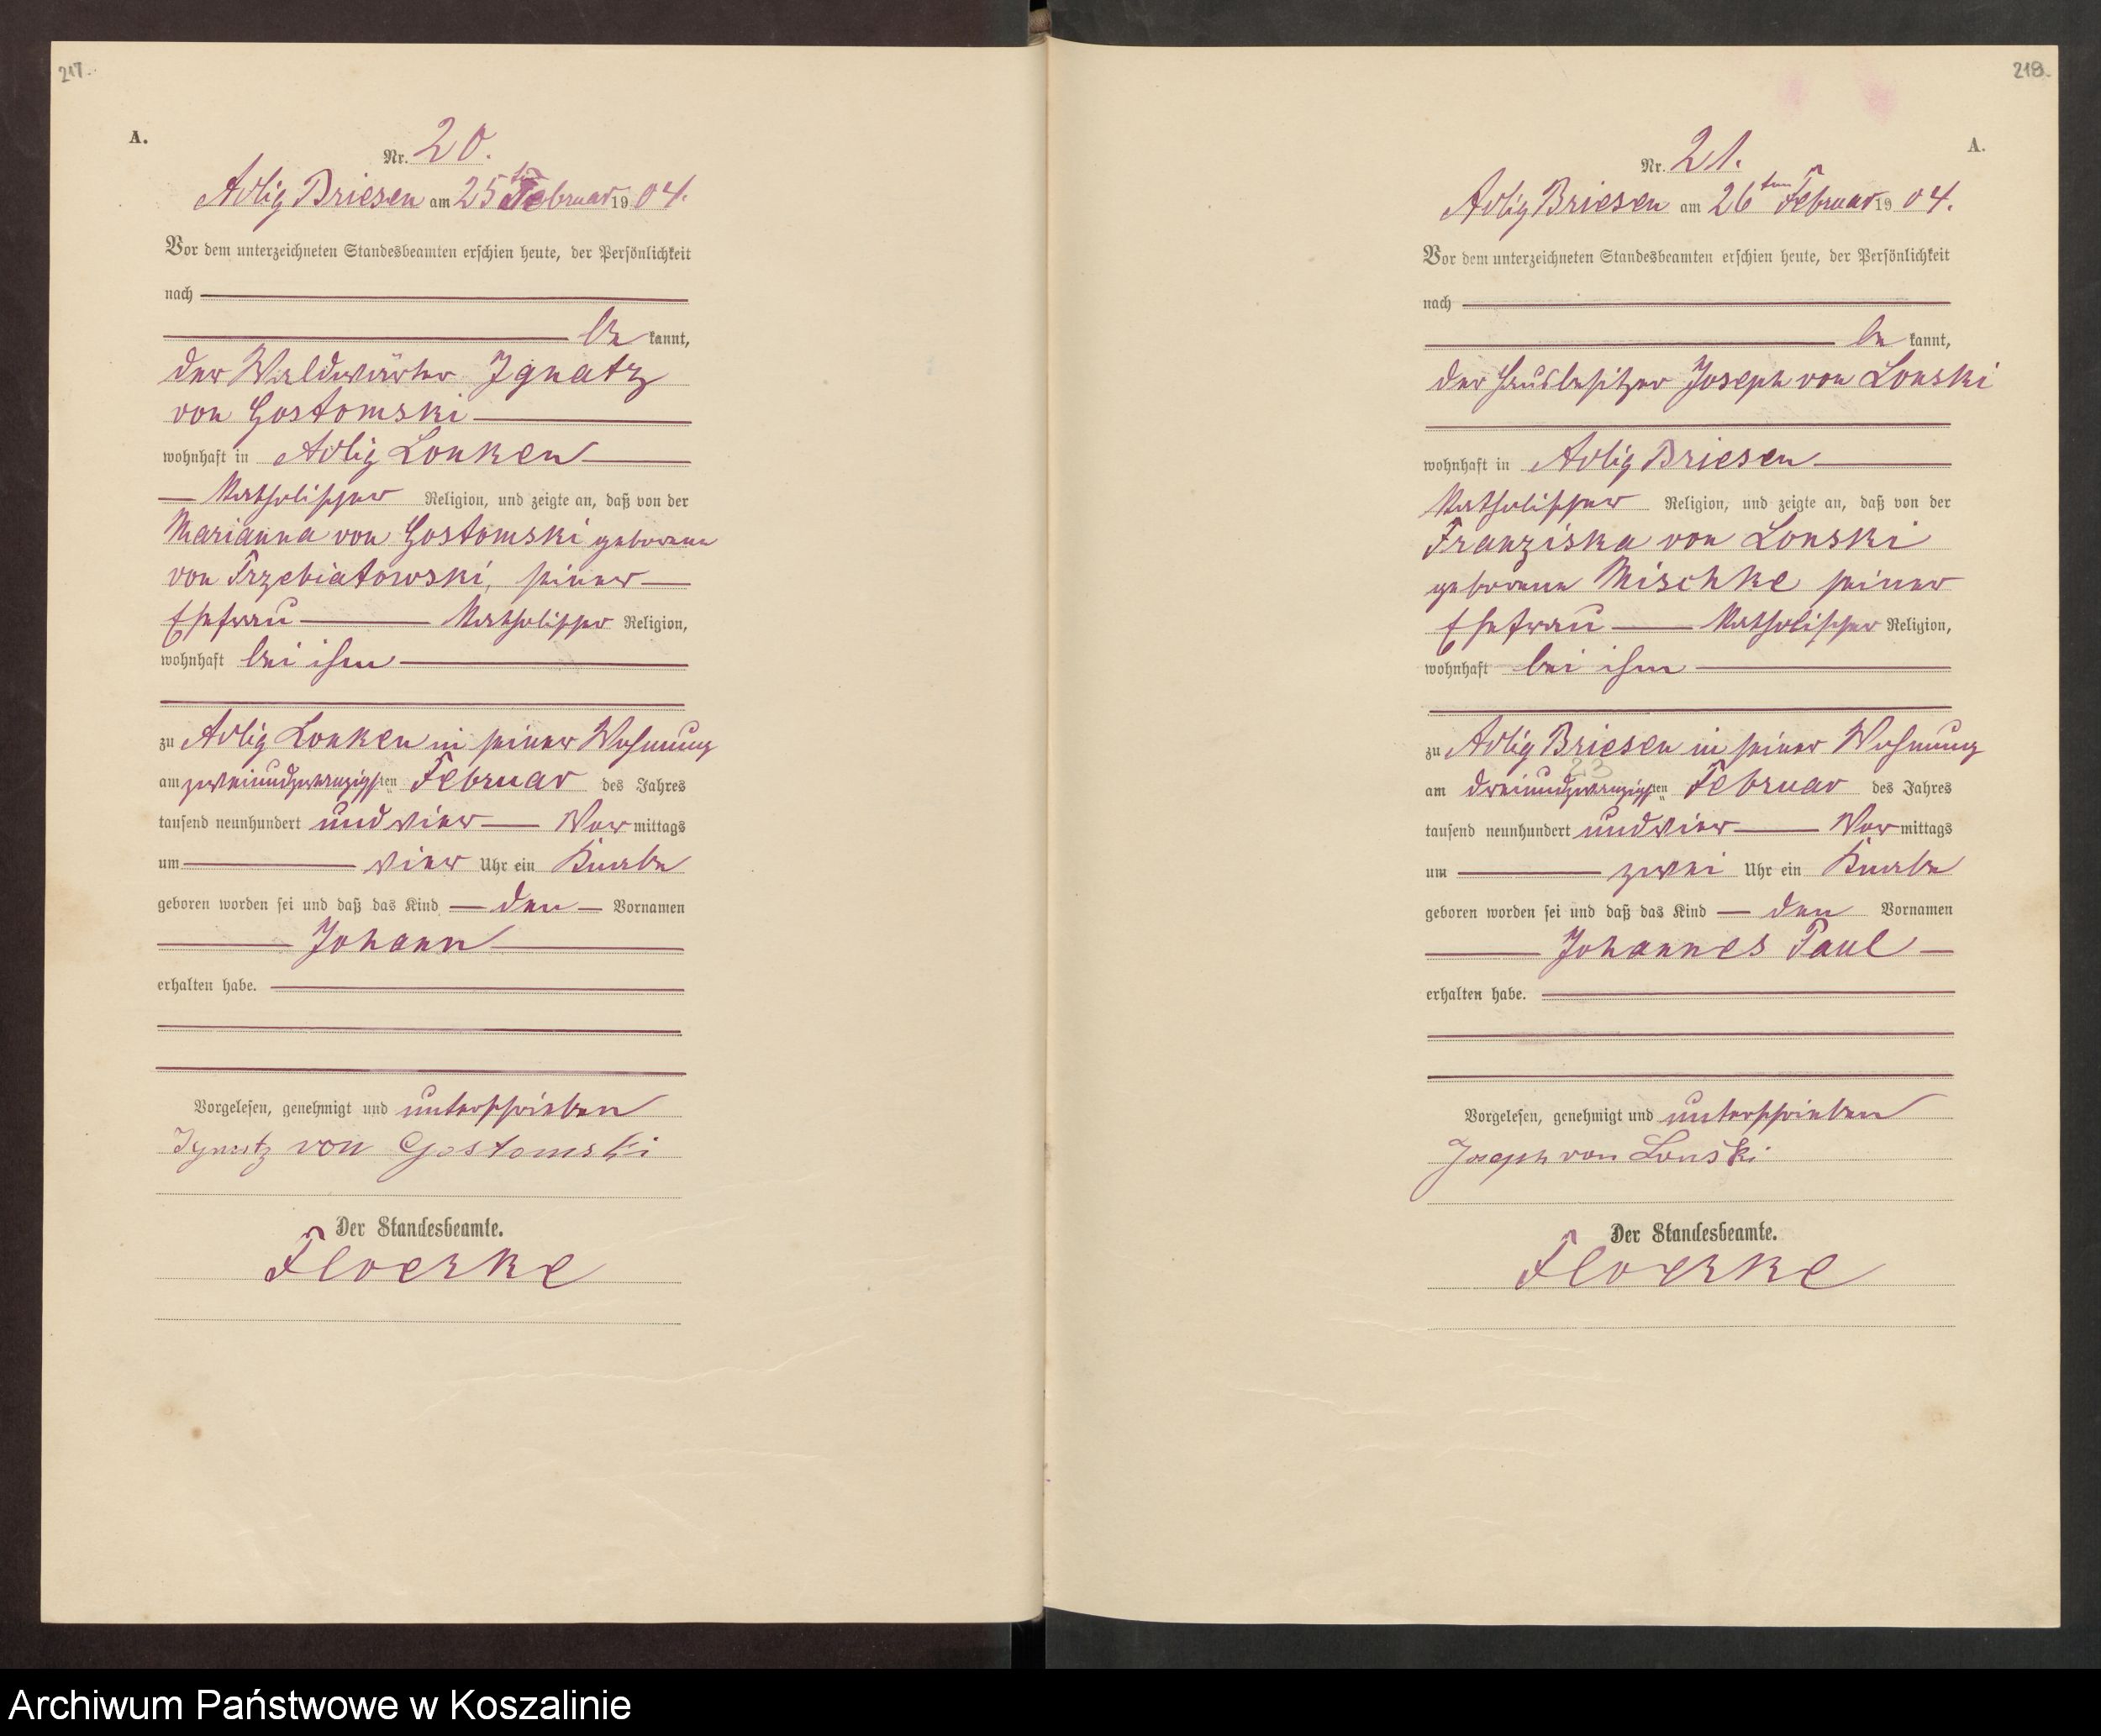 217.
A.
Nr. 20.
Adlig Briesen am 25ten Februar 1904.
Vor dem unterzeichneten Standesbeamten erschien heute, der Persönlichkeit
nach
be kannt,
der Waldwärter Ignatz
von Gostomski
wohnhaft in Adlig Lonken
Katholischer Religion, und zeigte an, daß von der
Marianna von Gostomski geborene
von Trzebiatowski, seiner
Ehefrau Katholischer Religion,
wohnhaft bei ihm
zu Adlig Lonken in seiner Wohnung
am zweiundzwanzigsten Februar des Jahres
tausend neunhundert und vier Vormittags
um vier Uhr ein Knabe
geboren worden sei und daß das Kind den Vornamen
Johann
erhalten habe.
Vorgelesen, genehmigt und unterschrieben
Ignatz von Gostomski
Der Standesbeamte.
Floerke
218.
A.
Nr. 21.
Adlig Briesen am 26ten Februar 1904.
Vor dem unterzeichneten Standesbeamten erschien heute, der Persönlichkeit
nach
be kannt,
der Hausbesitzer Joseph von Lonski
wohnhaft in Adlig Briesen
Katholischer Religion, und zeigte an, daß von der
Franziska von Lonski
geborene Mischke seiner
Ehefrau Katholischer Religion,
wohnhaft bei ihm
zu Adlig Briesen in seiner Wohnung
23
am dreiundzwanzigsten Februar des Jahres
tausend neunhundert und vier Vormittags
um zwei Uhr ein Knabe
geboren worden sei und daß das Kind den Vornamen
Johannes Paul
erhalten habe.
Vorgelesen, genehmigt und unterschrieben
Joseph von Lonski
Der Standesbeamte.
Floerke
Archiwum Państwowe w Koszalinie